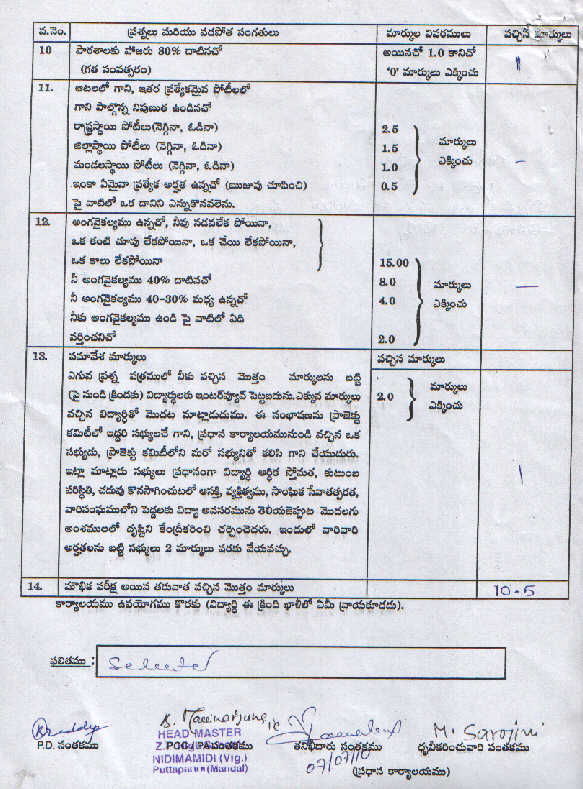 వ.నెం. ప్రశ్నలు మరియు వడపోత సంగతులు మార్కుల వివరములు వచ్చిన మార్కులు
10 పాఠశాలకు హాజరు 80% దాటినచో అయినచో 1.0 కానిచో 1
(గత సంవత్సరం) '0' మార్కులు ఎక్కించు
11. ఆటలలో గాని, ఇతర ప్రత్యేకమైన పోటీలలో
గాని పాల్గొన్న నిపుణుత ఉండినచో
రాష్ట్రస్థాయి పోటీలు(నెగ్గినా, ఓడినా) 2.5
జిల్లాస్థాయి పోటీలు (నెగ్గినా, ఓడినా) 1.5 మార్కులు
మండలస్థాయి పోటీలు (నెగ్గినా, ఓడినా) 1.0 ఎక్కించు -
ఇంకా ఏమైనా ప్రత్యేక అర్హత ఉన్నచో (ఋజువు చూపించి) 0.5
పై వాటిలో ఒక దానిని ఎన్నుకొనవలెను.
12. అంగవైకల్యము ఉన్నచో, నీవు నడవలేక పోయినా,
ఒక కంటి చూపు లేకపోయినా, ఒక చేయి లేకపోయినా,
ఒక కాలు లేకపోయినా 15.00
నీ అంగవైకల్యము 40% దాటినచో 8.0 మార్కులు -
నీ అంగవైకల్యము 40-30% మధ్య ఉన్నచో 4.0 ఎక్కించు
నీకు అంగవైకల్యము ఉండి పై వాటిలో ఏది
వర్తించనిచో 2.0
13. సమావేశ మార్కులు వచ్చిన మార్కులు
ఎగువ ప్రశ్న పత్రములో నీకు వచ్చిన మొత్తం మార్కులను బట్టి మార్కులు
(పై నుండి క్రిందకు) విద్యార్థులకు ఇంటర్వ్యూవ్ పెట్టబడును. ఎక్కువ మార్కులు 2.0 ఎక్కించు
వచ్చిన విద్యార్థితో మొదట మాట్లాడుదుము. ఈ సంభాషణను ప్రాజెక్టు
కమిటీలో ఇద్దరి సభ్యులచే గాని, ప్రధాన కార్యాలయమునుండి వచ్చిన ఒక
సభ్యుడు, ప్రాజెక్టు కమిటీలోని మరో సభ్యునితో కలిసి గాని చేయుదురు.
ఇట్లా మాట్లాడు సభ్యులు ప్రధానంగా విద్యార్థి ఆర్థిక స్తోమత, కుటుంబ 1
పరిస్థితి, చదువు కొనసాగించుటలో ఆసక్తి, వ్యక్తిత్వము, సాంఘిక సేవాతత్పరత,
వారిసంఘములోని పెద్దలకు విద్యా అవసరమును తెలియజెప్పుట మొదలగు
అంశములలో దృష్టిని కేంద్రీకరించి చర్చించెదరు. ఇందులో వారివారి
అర్హతలను బట్టి సభ్యులు 2 మార్కులు వరకు వేయవచ్చు.
14. మౌఖిక పరీక్ష అయిన తరువాత వచ్చిన మొత్తం మార్కులు 10-5
కార్యాలయము ఉపయోగము కొరకు (విద్యార్థి ఈ క్రింది ఖాళీలో ఏమీ వ్రాయకూడదు).
ఫలితము : Selected
M. Sarojini
HEAD MASTER
P.D. సంతకము సంతకము తనిఖీదారు సంతకము ధృవీకరించువారి సంతకము
NIDIMAMIDI (Vig.) 07/07/10
Puttaparthi (Mandal) (ప్రధాన కార్యాలయము)